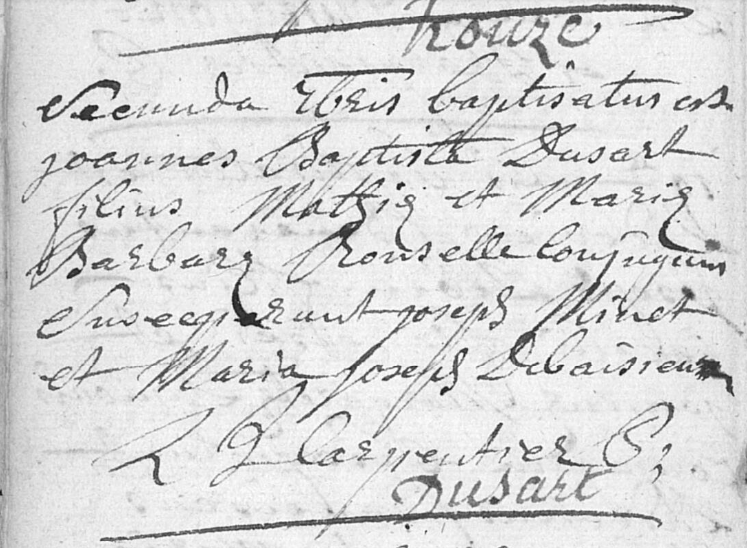 trouze
Secunda xbris baptisatus est
joannes Baptista Dusart
filius Mathię et Marię
Barbarę Rouselle Conjugum
Susceperunt joseph Minet
et Maria joseph Debaisieux
L J Carpentier P;
Dusart